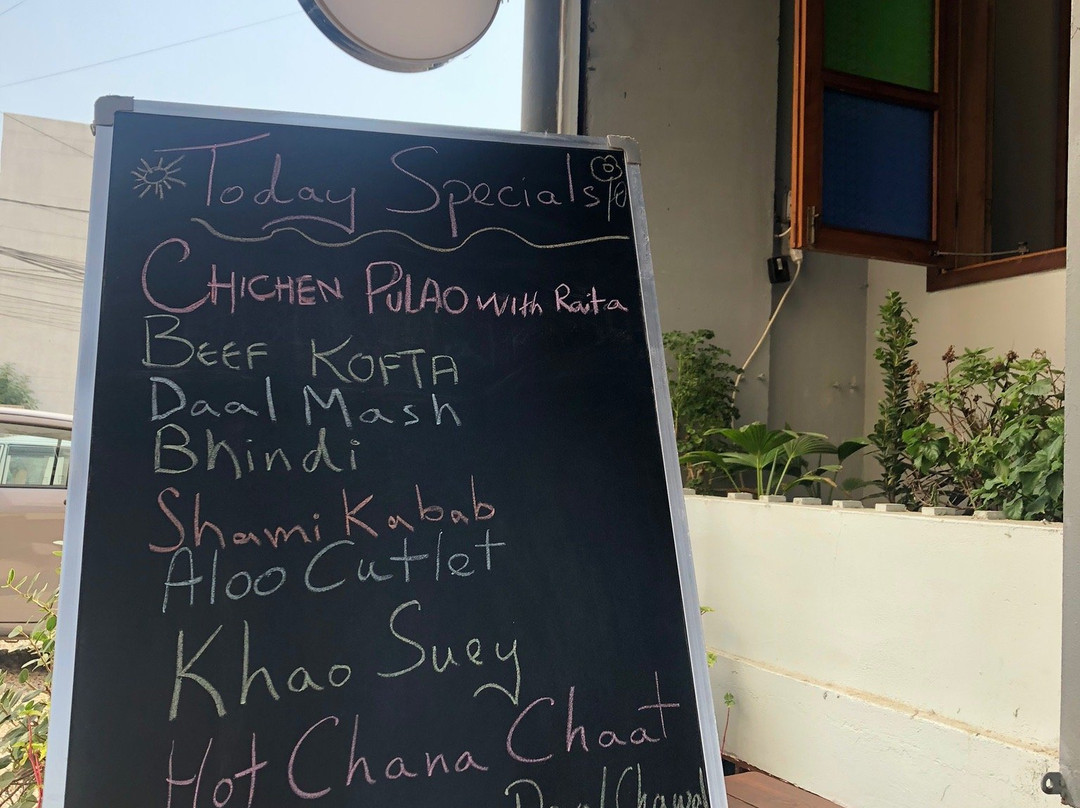 Today Specials
CHICHEN PULAO with Raita
BEEF KOFTA
Daal Mash
Bhindi
Shami Kabab
Aloo Cutlet
Khao Suey
Hot Chana Chaat
Daal Chawal